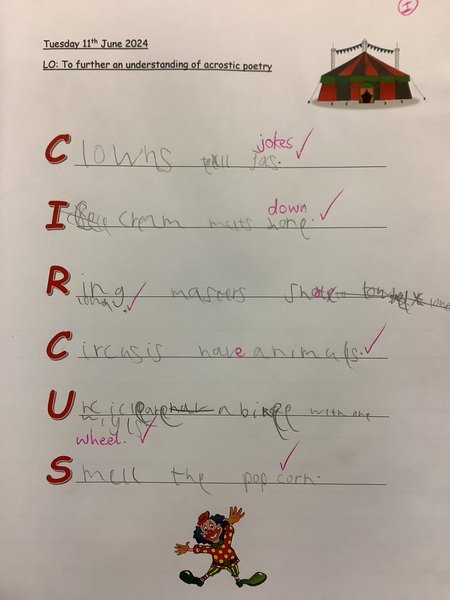 I
Tuesday 11th June 2024
LO: To further an understanding of acrostic poetry
jokes
Clowns tell
down.
Ice cream melts
Ring masters
Circusis have animals.
U a with one
wheel.
Smell the pop corn.